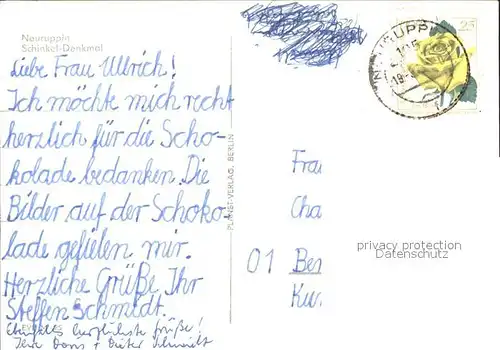 Neuruppin
Schinkel-Denkmal
Liebe Frau Ullrich!
Ich möchte mich recht
herzlich für die Scho-
kolade bedanken. Die
Bilder auf der Schoko-
lade gefielen mir.
Herzliche Grüße Ihr
Steffen Schmidt.
herzlichste Grüße!
Ihre Doris + Dieter Schmidt
PLANET-VERLAG, BERLIN
NEURUPPIN
25
Frau
Cha
01 Ber
privacy protection
Datenschutz